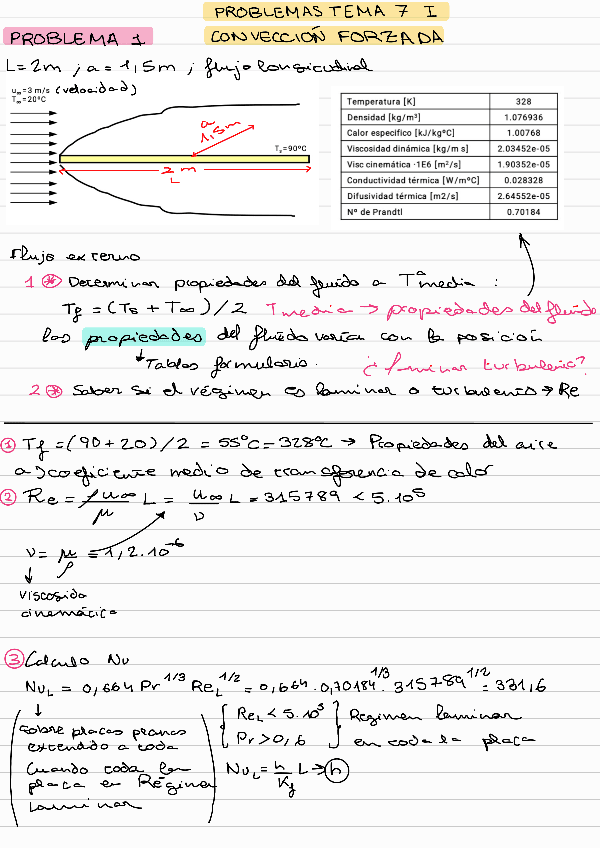 PROBLEMAS TEMA 7 I
PROBLEMA 1
CONVECCIÓN FORZADA
L=2m ; a=1,5m ; flujo longitudinal
u∞=3 m/s (velocidad)
T∞=20ºC
a
1,5m
Ts=90ºC
2 m
L
Temperatura [K] 328
Densidad [kg/m³] 1.076936
Calor especifico [kJ/kgºC] 1.00768
Viscosidad dinámica [kg/m s] 2.03452e-05
Visc cinemática ·1E6 [m²/s] 1.90352e-05
Conductividad térmica [W/mºC] 0.028328
Difusividad térmica [m2/s] 2.64552e-05
Nº de Prandtl 0.70184
Flujo externo
1 Determinar propiedades del fluido a Tª media :
Tf = (Ts + T∞)/2 Tmedia → propiedades del fluido
las propiedades del fluido varían con la posición
↳ Tablas formulario. ¿laminar turbulento?
2 Saber si el régimen es laminar o turbulento → Re
① Tf = (90+20)/2 = 55ºC = 328ºC → Propiedades del aire
a) coeficiente medio de transferencia de calor
② Re = ρu∞/μ L = u∞/ν L = 315789 < 5·10⁵
ν = μ/ρ = 1,2·10⁻⁶
viscosida
cinemática
③ Calculo Nu
NuL = 0,664 Pr^1/3 ReL^1/2 = 0,664 · 0,70184^1/3 · 315789^1/2 = 331,6
sobre placas planas
extendido a toda
Cuando toda la
placa en Régimen
Laminar
ReL < 5·10⁵
Pr > 0,6
Regimen laminar
en toda la placa
NuL = h/Kf L → h